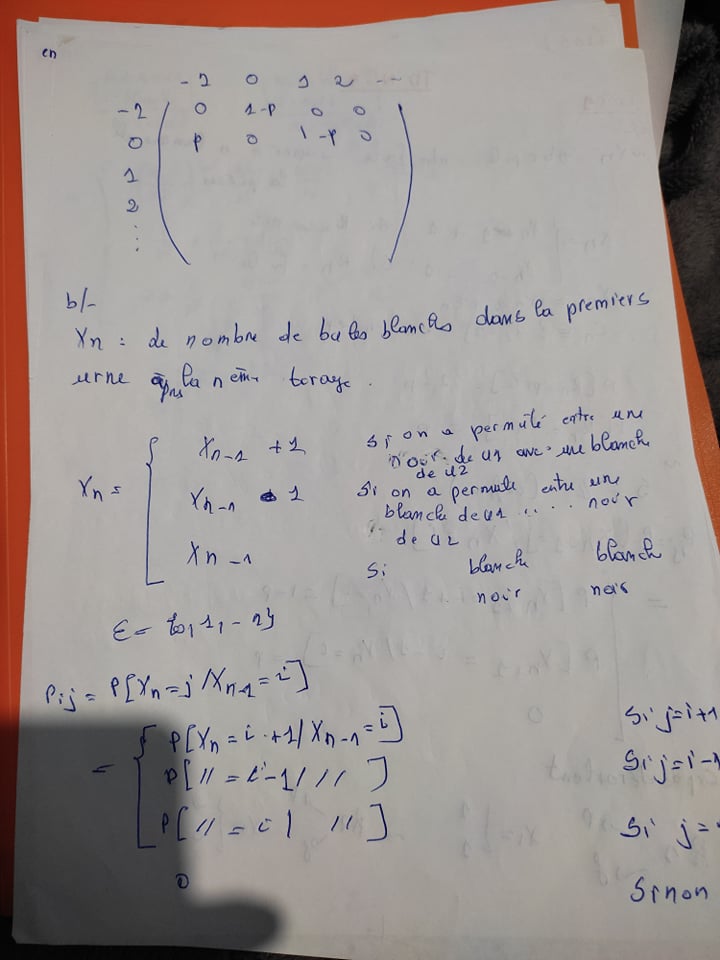 en
-1 0 1 2 ...
-1 0 1-P 0 0
0 P 0 1-P 0
1
2
⋮
b/-
Xn : de nombre de boules blanches dans la premiers
urne après la n ème
Xn = { Xn-1 + 1 si on a permuté entre une
noir de u1 avec une blanche
de u2
Xn-1 - 1 Si on a permuté entre une
blanche de u1 .... noir
de u2
Xn-1 Si blanche blanche
noir noir
E = {0, 1, - n}
Pij = P[Xn = j / Xn-1 = i]
= { P[Xn = i + 1 / Xn-1 = i] Si j = i+1
P[ // = i-1 / // ] Si j = i-1
P[ // = i | // ] Si j =
0 Sinon